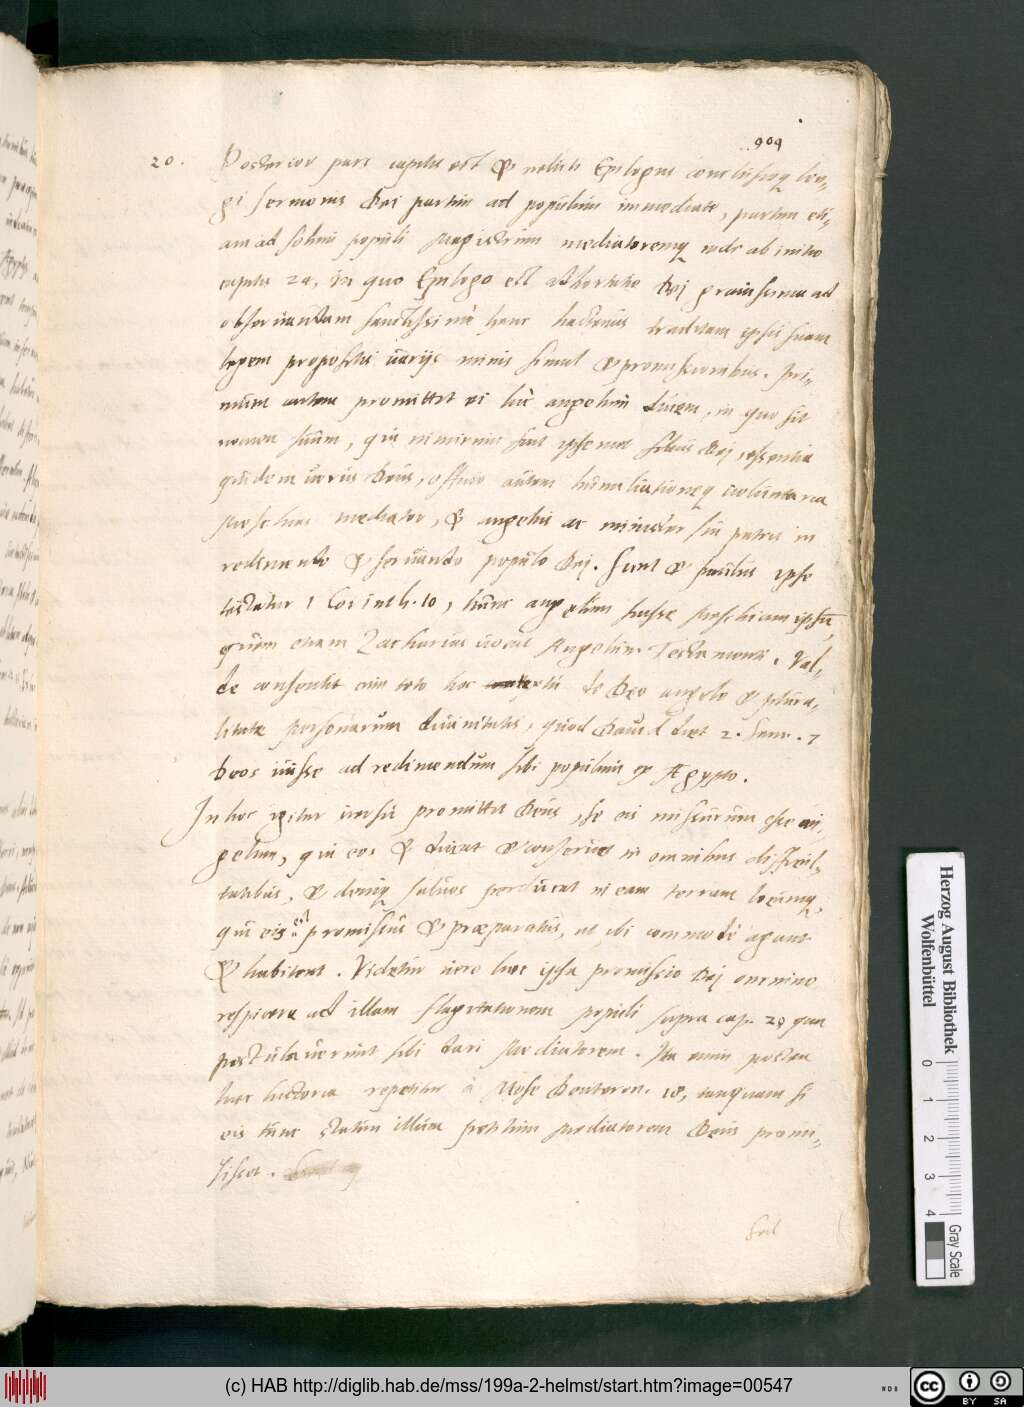 909
20. Posterior pars capitis est & uelut Epilogus conclusioq lon-
gi sermonis Dei partim ad populum immediate, partim eti-
am ad solum populi Magistrum mediatoremq inde ab initio
capitis 24, in quo Epilogo est adhortatio Dei grauissima ad
obseruandam sanctissime hanc hactenus traditam ipsis suam
legem propositis uarijs minis simul & promissionibus. Pri-
mum autem promittit ei hic angelum ducem, in quo sit
nomen suum, qui nimirum sit ipsemet filius Dei, essentia
quidem uerus Deus, officio autem humiliationeq uoluntaria
Meschias mediator, & angelus ac minister sui patris in
redimendo & seruando populo Dei. Sicut & Paulus ipse
testatur 1 Corinth. 10, hunc angelum fuisse Meschiam ipsū,
quem etiam Zacharias uocat Angelum Testamenti. Val-
de consentit cum toto hoc de Deo angelo & plura-
litate personarum diuinitatis, quod Dauid dicit 2. Sam. 7
Deos iuisse ad redimendum sibi populum ex Ægypto.
In hoc igitur uersu promittit Deus, se eis missurum esse an-
gelum, qui eos & ducat & conseruet in omnibus difficul-
tatibus, & deniq saluos perducat in eam terram locumq,
qui eis est promissus & præparatus, ut ibi commode agant
& habitent. Videtur uero haec ipsa promissio Dei omnino
respicere ad illam flagitationem populi supra cap. 20 qua
postulauerunt sibi dari Mediatorem. Ita enim postea
haec historia repetitur à Mose Deuteron. 18, tanquam si
eis tunc statim illum petitum mediatorem Deus promi-
sisset.
Herzog August Bibliothek
Wolfenbüttel
0 1 2 3 4
Gray Scale
(c) HAB http://diglib.hab.de/mss/199a-2-helmst/start.htm?image=00547
cc BY SA